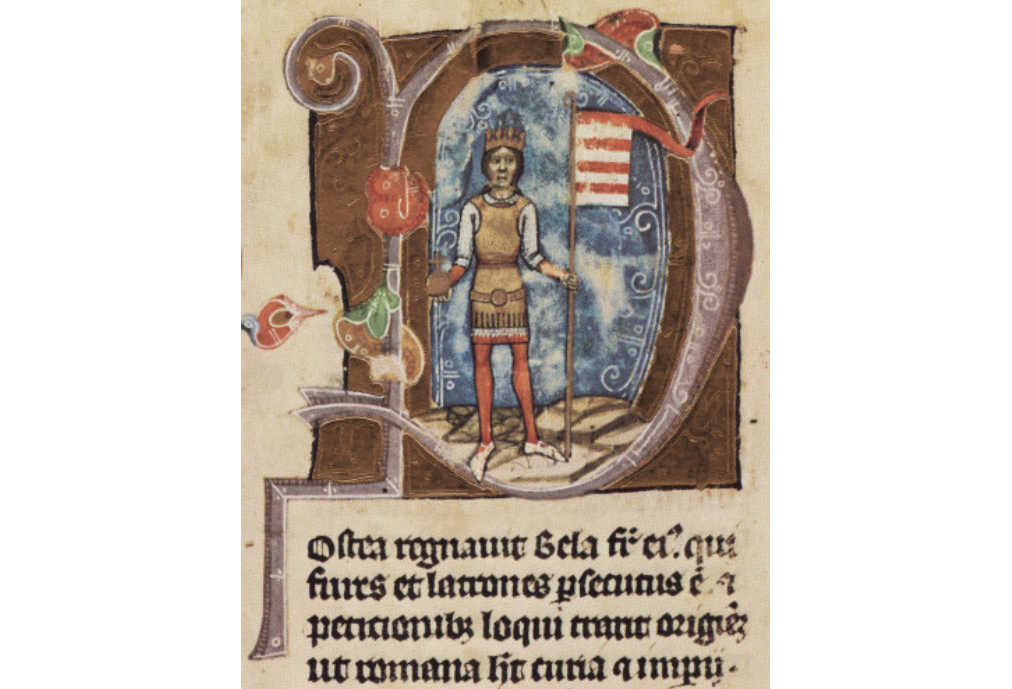 Postea regnauit Bela fr̄ eiꝰ. qui
fures et latrones ꝑsecutus ē. ⁊
peticionibꝫ loqui traxit origiēꝫ
ut romana ħt curia ⁊ impij.